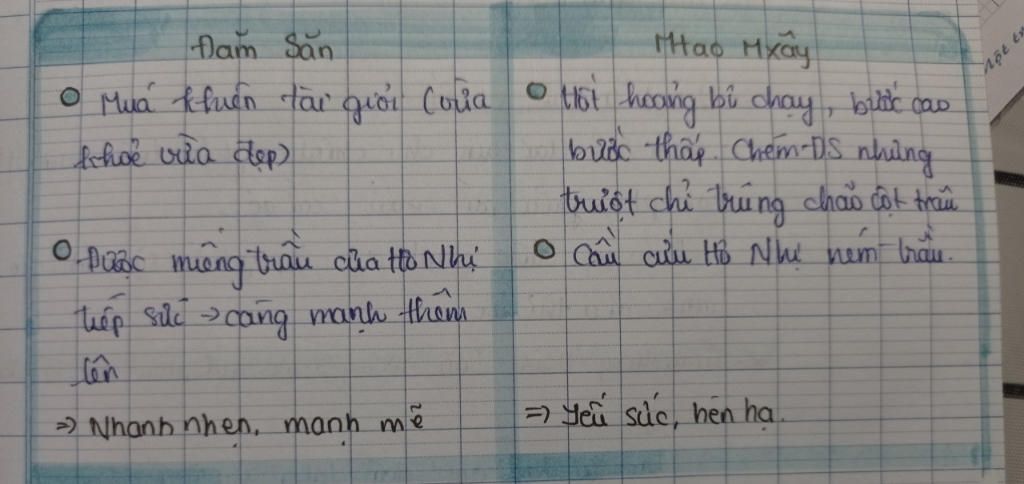 Đam Săn
Múa khiên tài giỏi (vừa
khoẻ vừa đẹp)
Được miếng trầu của Hơ Nhị
tiếp sức → càng mạnh thêm
lên
⇒ Nhanh nhẹn, mạnh mẽ
Mtao Mxây
Hốt hoảng bỏ chạy, bước cao
bước thấp. Chém ĐS nhưng
trượt chỉ trúng chão cột trâu
Cầu cứu Hơ Nhị ném trầu.
⇒ Yếu sức, hèn hạ.